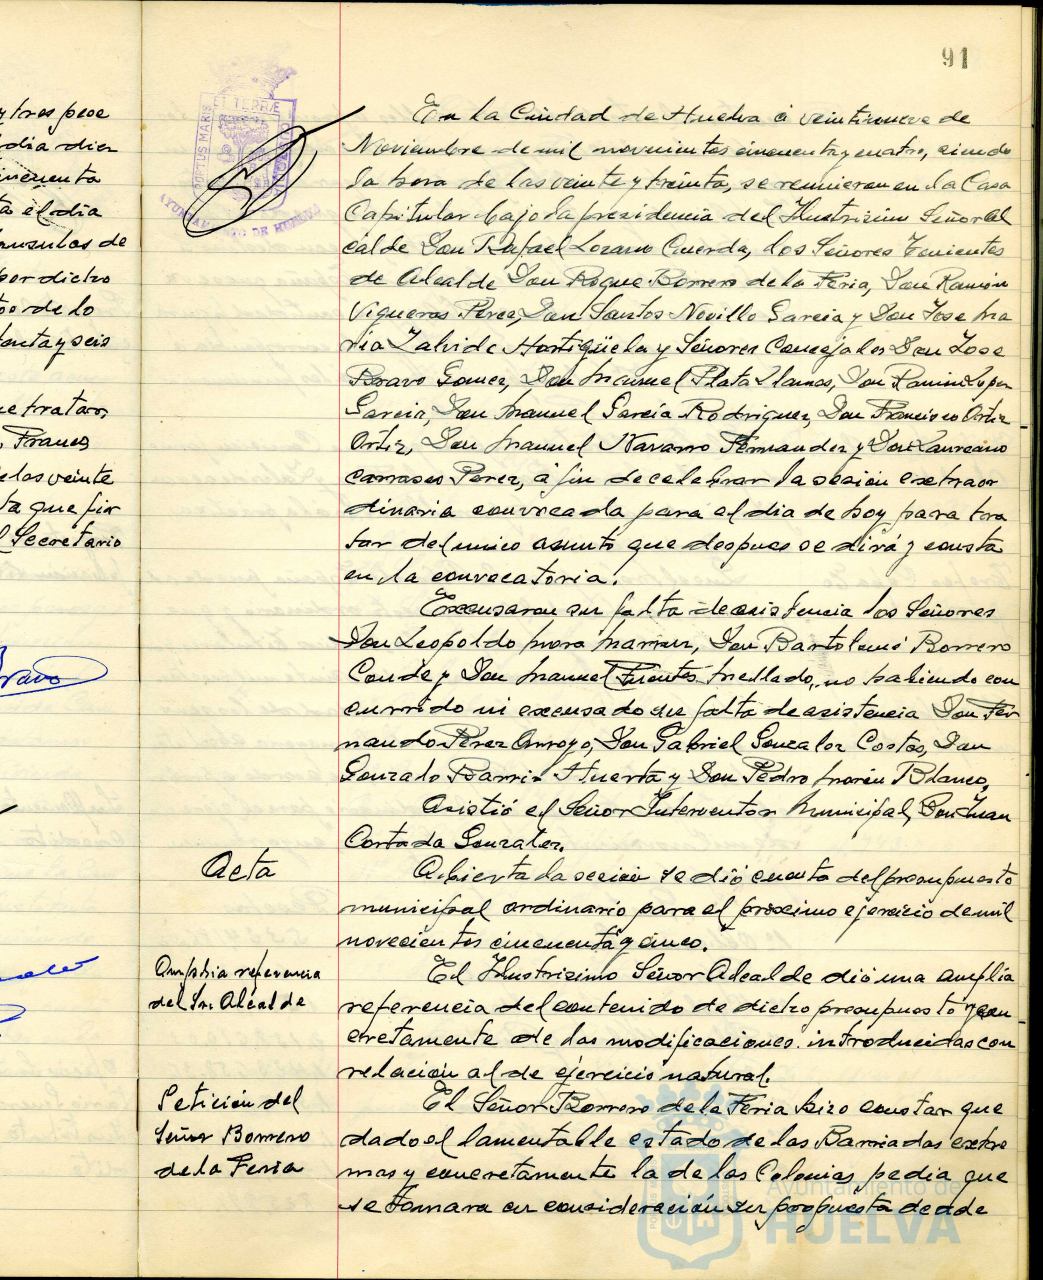 91
y tres pese
dia diez
cincuenta
el dia
por dicho
to de lo
tenta y seis
se trataron
Franco
de las veinte
ta que fir
el Secretario
Bravo
PORTUS MARIS ET TERRAE
AYUNTAMIENTO DE HUELVA
En la Ciudad de Huelva a veintinueve de
Noviembre de mil novecientos cincuenta y cuatro, siendo
la hora de las veinte y treinta, se reunieron en la Casa
Capitular bajo la presidencia del Ilustrisimo Señor Al
calde Don Rafael Lozano Cuerda, los Señores Tenientes
de Alcalde Don Roque Borrero de la Feria, Don Ramón
Vigueras Perez, Don Santos Novillo Garcia y Don Jose Ma
ria Zalvide Hortigüela y Señores Concejales Don Jose
Bravo Gomez, Don Manuel Plata Llamas, Don Ramon Lopez
Garcia, Don Manuel García Rodriguez, Don Francisco Ortiz
Ortiz, Don Manuel Navarro Fernandez y Don Laureano
Carrasco Perez, a fin de celebrar la sesion extraor
dinaria convocada para el dia de hoy para tra
tar del unico asunto que despues se dirá y consta
en la convocatoria.
Excusaron su falta de asistencia los Señores
Don Leopoldo Mora, Don Bartolomé Borrero
Conde y Don Manuel Fuentes Mellado, no habiendo con
currido ni excusado su falta de asistencia Don Fer
nando Perez Arroyo, Don Gabriel Gonzalez Costas, Don
Gonzalo Barris Huerta y Don Pedro Morón Blanco.
Asistió el Señor Interventor Municipal, Don Juan
Cortada Gonzalez.
Acta
Abierta la sesion se dió cuenta del presupuesto
municipal ordinario para el próximo ejercicio de mil
novecientos cincuenta y cinco.
Amplia referencia
del Sr. Alcalde
El Ilustrisimo Señor Alcalde dió una amplia
referencia del contenido de dicho presupuesto y con
cretamente de las modificaciones introducidas con
relación al de ejercicio natural.
Petición del
Señor Borrero
de la Feria
El Señor Borrero de la Feria hizo constar que
dado el lamentable estado de las Barriadas extre
mas y concretamente la de las Colonias, pedia que
se tomara en consideración su propuesta desde
Ayuntamiento de
HUELVA